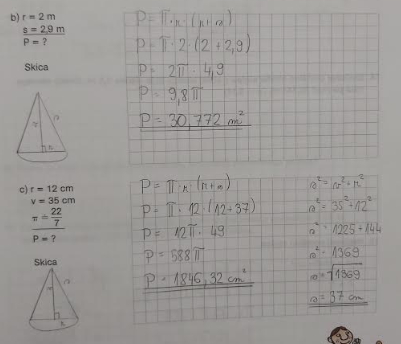 b) r = 2 m
s = 2,9 m
P = ?
Skica
P = π · r · (r + s)
P = π · 2 · (2 + 2,9)
P = 2π · 4,9
P = 9,8π
P = 30,772 m²
c) r = 12 cm
v = 35 cm
π = 22/7
P = ?
Skica
P = π · r · (r + s)
P = π · 12 · (12 + 37)
P = 12π · 49
P = 588π
P = 1846,32 cm²
s² = v² + r²
s² = 35² + 12²
s² = 1225 + 144
s² = 1369
s = √1369
s = 37 cm